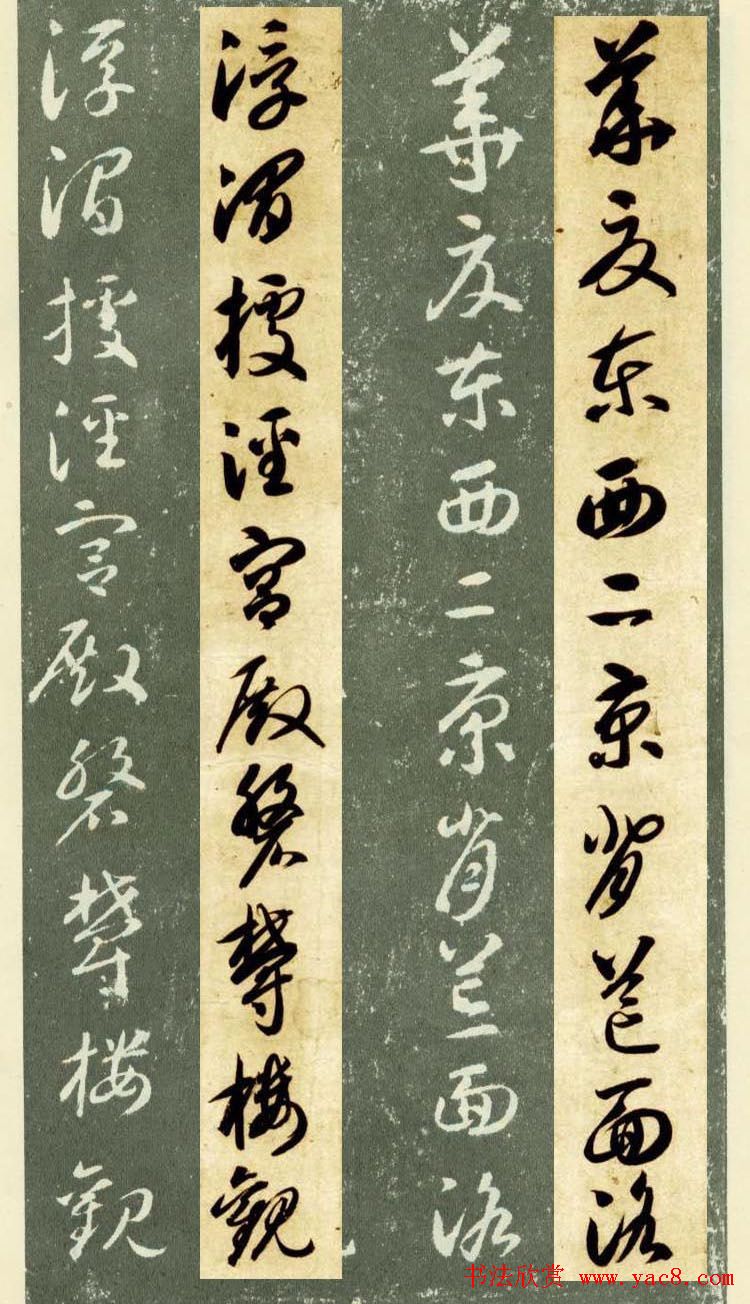 華夏東西二京背芒面洛
華夏東西二京背芒面洛
浮渭據涇宮殿磐欝樓觀
浮渭據涇宮殿磐欝樓觀
书法欣赏 www.yac8.com